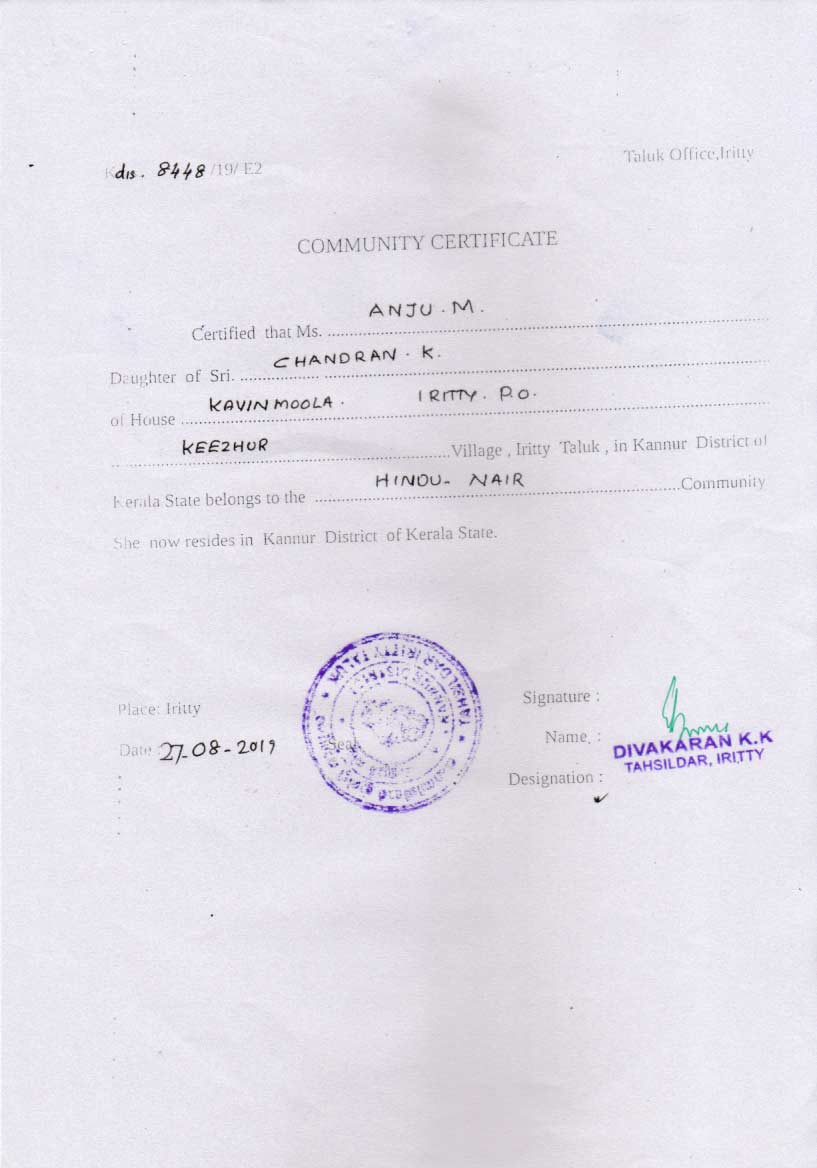 Kdis. 8448 /19/ E2
Taluk Office,Iritty
COMMUNITY CERTIFICATE
Certified that Ms. ANJU . M.
Daughter of Sri. CHANDRAN . K.
of House KAVINMOOLA . IRITTY . P.O.
KEEZHUR Village , Iritty Taluk , in Kannur District of
Kerala State belongs to the HINDU- NAIR Community
She now resides in Kannur District of Kerala State.
TAHSILDAR IRITTY TALUK
KANNUR DISTRICT
Place: Iritty
Date : 27-08-2019
Seal
Signature :
Name :
DIVAKARAN K.K
TAHSILDAR, IRITTY
Designation :